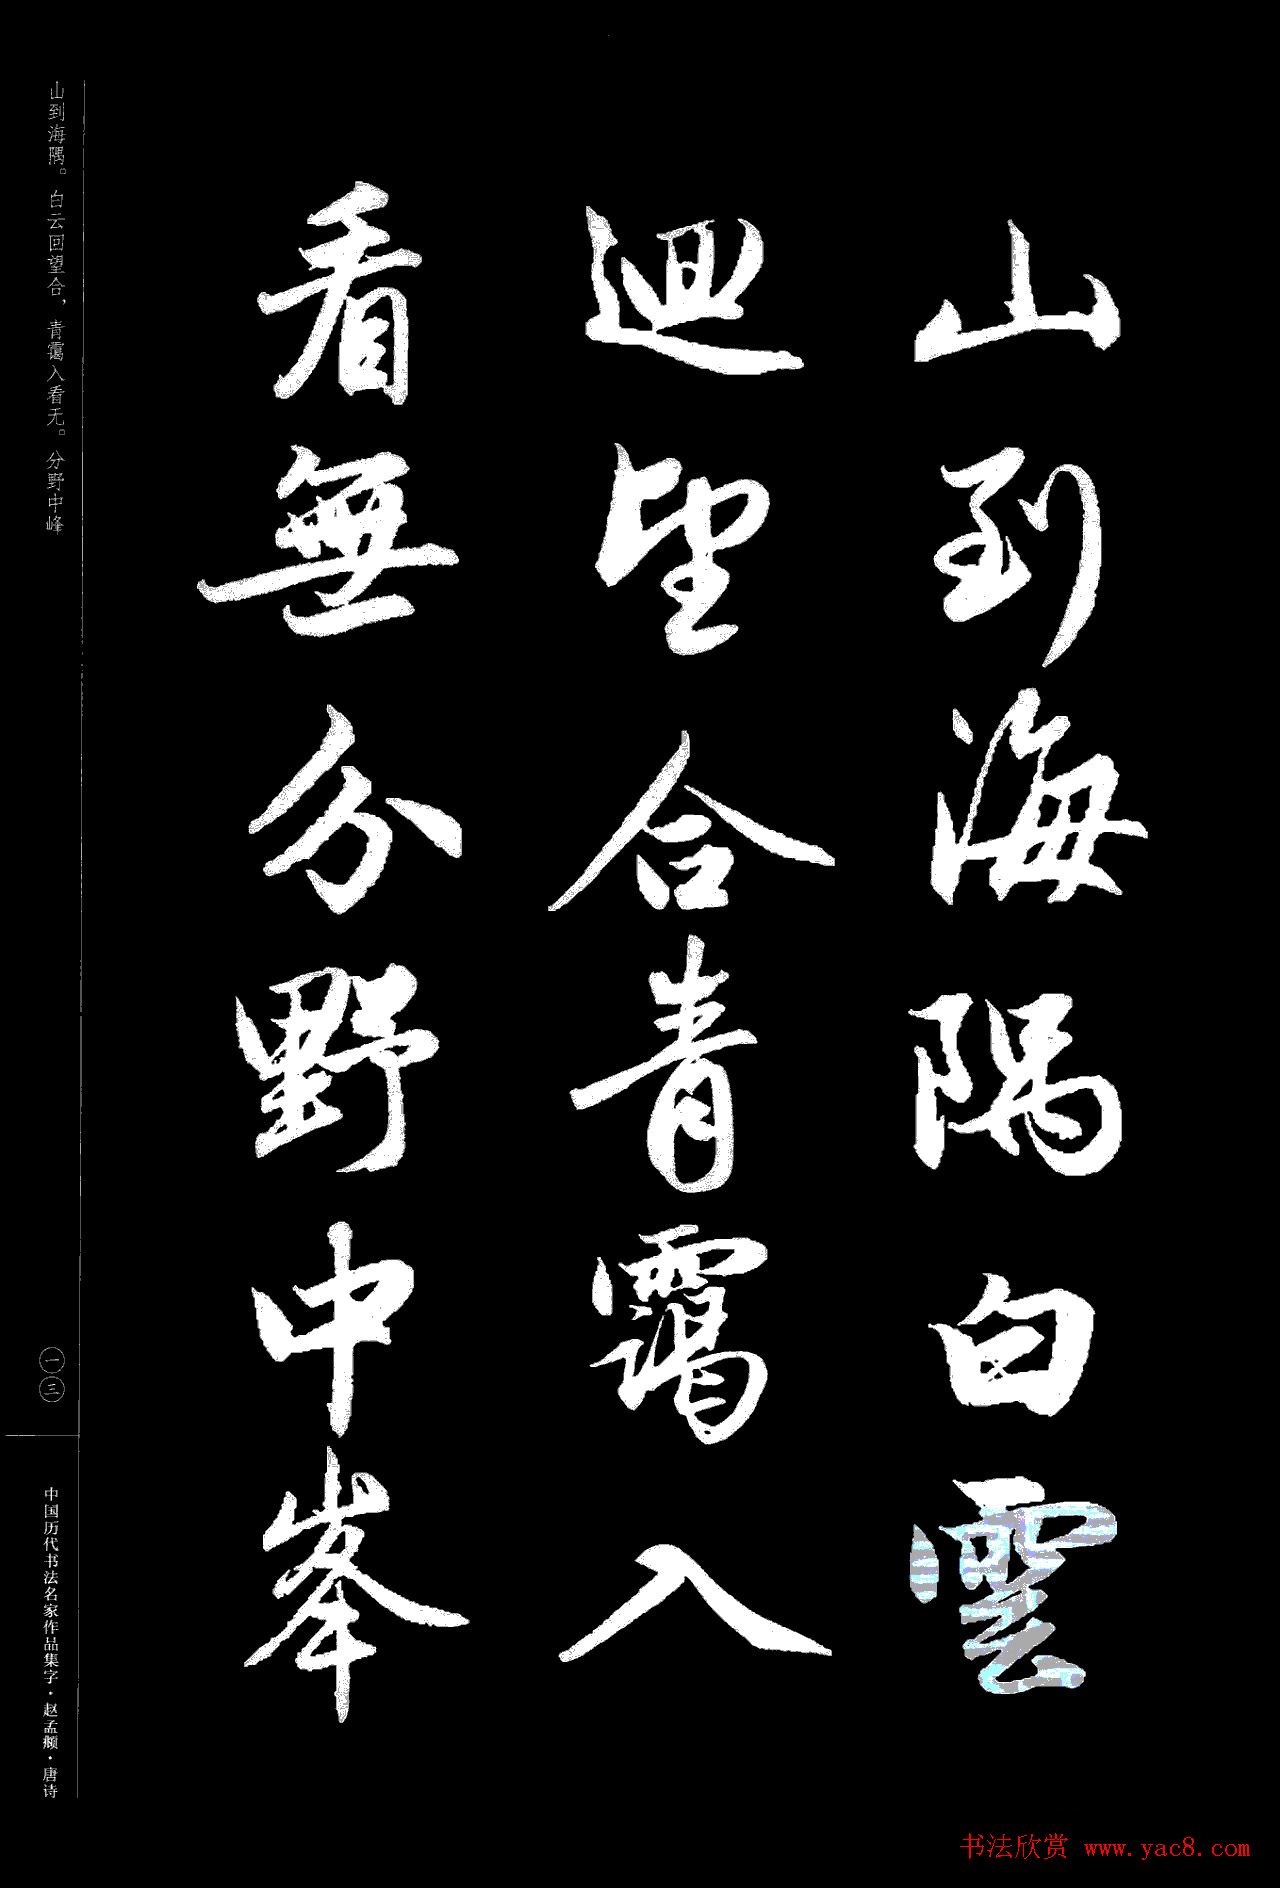 山到海隅白雲
迴望合青靄入
看無分野中峯
山到海隅。白云回望合，青霭入看无。分野中峰
一三
中国历代书法名家作品集字·赵孟頫·唐诗
书法欣赏 www.yac8.com